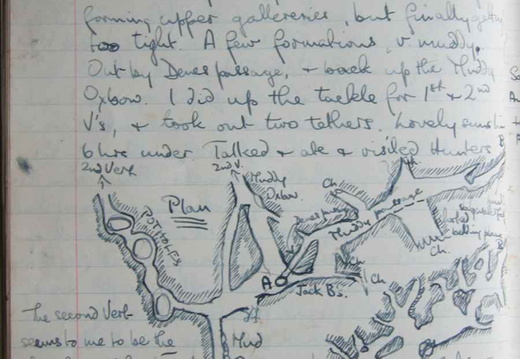 forming upper galleries, but finally gets
too tight. A few formations, v. muddy.
Out by Deves passage, & back up the Muddy
Oxbow. I did up the tackle for 1st & 2nd
V's, & took out two tethers. Lovely
6 hrs under. Talked & ate & visited Hunters
2nd Vert.
2nd V.
Muddy
Oxbow
Plan
POTHOLES
Ch.
Deves passage
Muddy passage
Ch.
A
Jack B's.
Ch
Ch
B
The second Vert
seems to me to be the
Mud